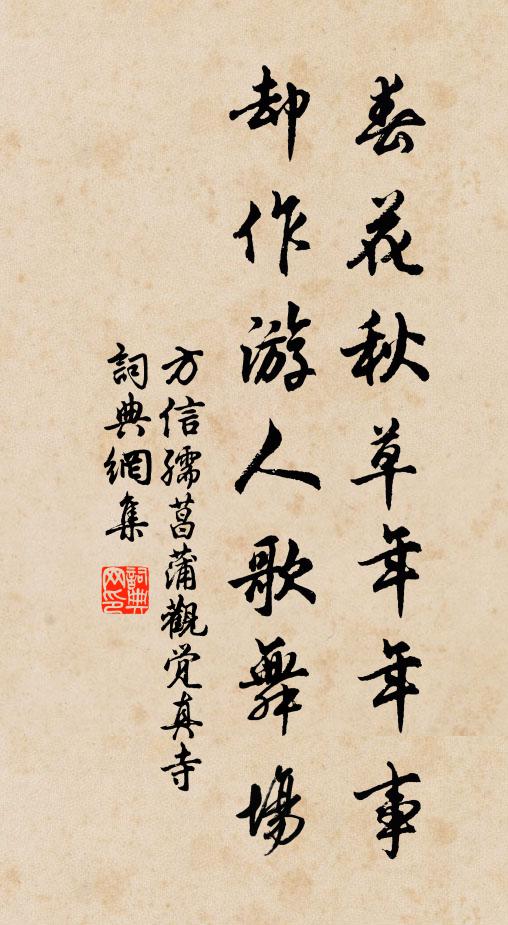 春花秋草年年事
却作游人歌舞場
方信孺菖蒲觀覺真寺
詞典網集
詞典
網印